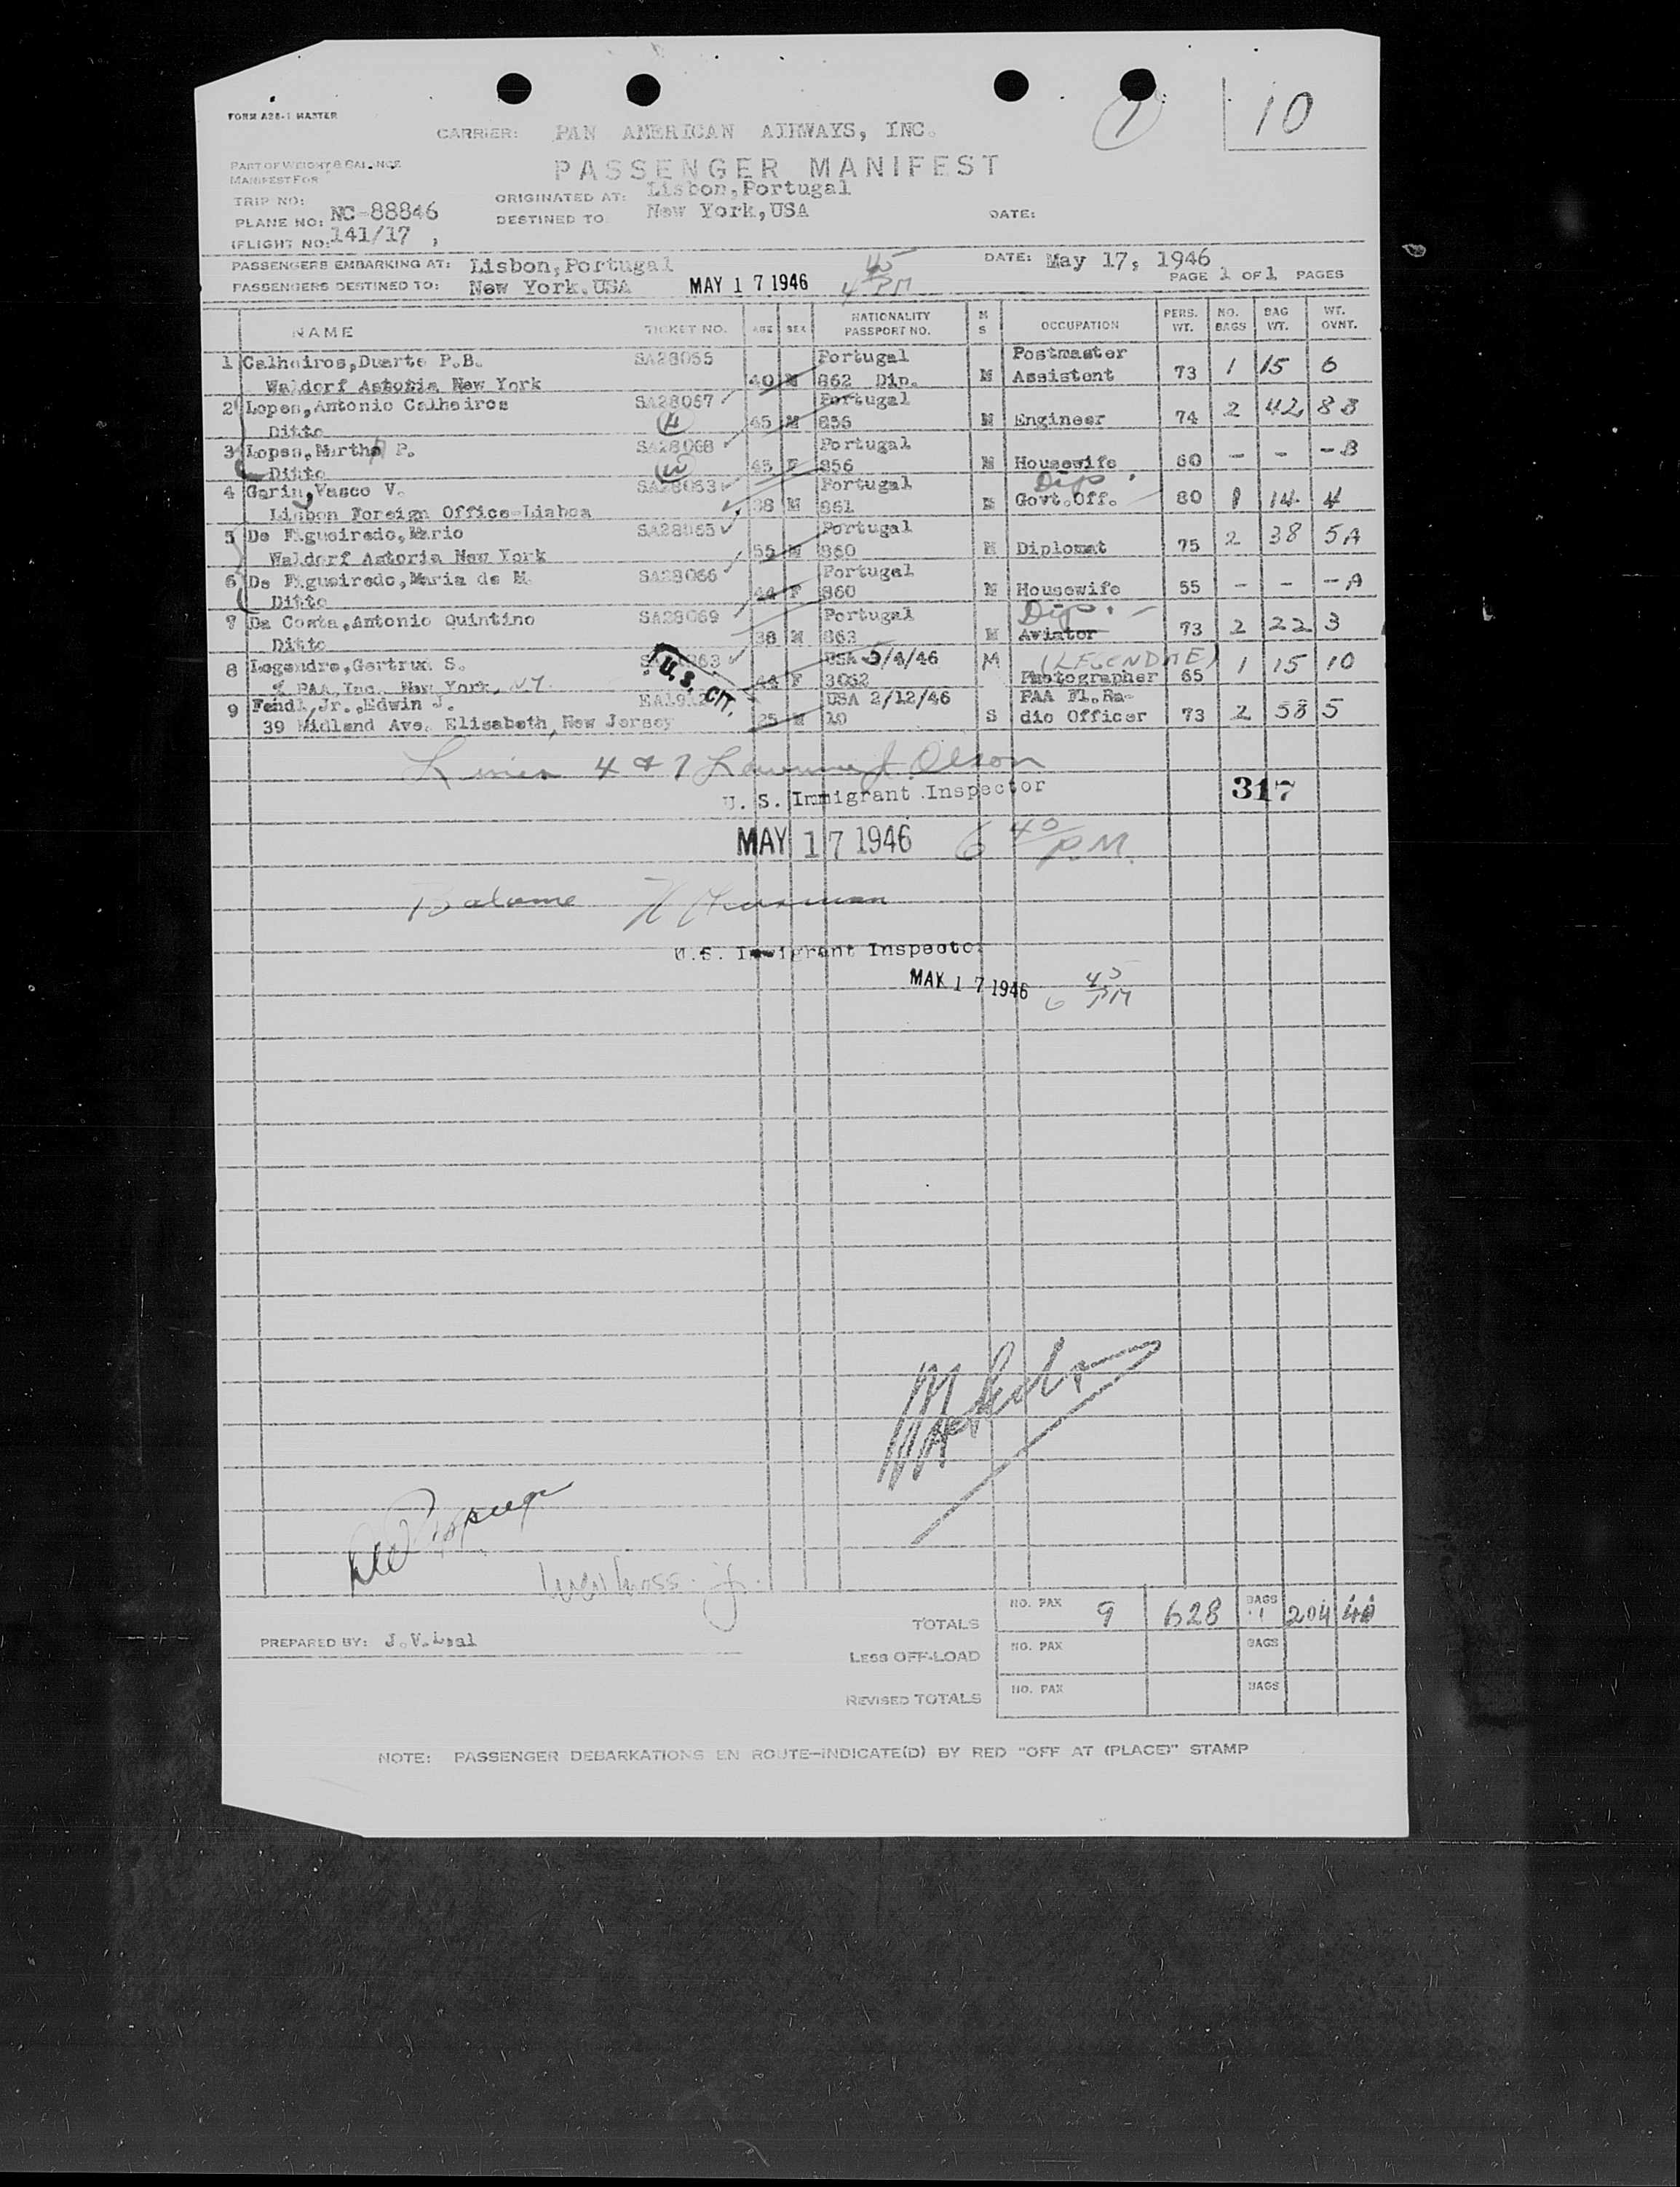 FORM A28-1 MASTER
1
10
CARRIER: PAN AMERICAN AIRWAYS, INC.
PART OF WEIGHT & BALANCE
MANIFEST FOR
PASSENGER MANIFEST
TRIP NO:
ORIGINATED AT: Lisbon,Portugal
PLANE NO: NC-88846
DESTINED TO New York,USA
DATE:
(FLIGHT NO: 141/17 ,
PASSENGERS EMBARKING AT: Lisbon,Portugal
DATE: May 17, 1946
PASSENGERS DESTINED TO: New York,USA MAY 17 1946 4 45 PM
PAGE 1 OF 1 PAGES
NAME TICKET NO. AGE SEX NATIONALITY PASSPORT NO. M S OCCUPATION PERS. WT. NO. BAGS BAG WT. WT. OVNT.
1 Calheiros,Duarte P.B. SA28055 Portugal Postmaster
Waldorf Astoria New York 40 M 862 Dip. M Assistent 73 1 15 6
2 Lopes,Antonio Calheiros SA28067 Portugal
Ditto 45 M 856 M Engineer 74 2 42 8 B
3 Lopes,Martha P. SA28068 Portugal
Ditto 45 F 856 M Housewife 60 - - - B
4 Garin,Vasco V. SA28063 Portugal Dip.
Lisbon Foreign Office-Lisboa 38 M 861 M Govt.Off. 80 1 14 4
5 De Figueiredo,Mario SA28065 Portugal
Waldorf Astoria New York 55 M 860 M Diplomat 75 2 38 5 A
6 De Figueiredo,Maria de M. SA28066 Portugal
Ditto 44 F 860 M Housewife 55 - - - A
7 Da Costa,Antonio Quintino SA28069 Portugal Dip.
Ditto 38 M 863 M Aviator 73 2 22 3
8 Legendre,Gertrud S. USA 5/4/46 M (LEGENDRE)
% PAA,Inc. New York, N.Y. U.S. CIT. 44 F 3062 Photographer 65 1 15 10
9 Fendl,Jr.,Edwin J. USA 2/12/46 PAA Fl.Ra-
39 Midland Ave. Elisabeth, New Jersey 25 M 10 S dio Officer 73 2 58 5
Lines 4 & 7 Lawrence J. Olson
U. S. Immigrant Inspector
317
MAY 17 1946 6 40 P.M.
Balance
U.S. Immigrant Inspector
MAY 17 1946 6 45 PM
TOTALS NO. PAX 9 628 BAGS 11 204 41
PREPARED BY: J.V.Leal
LESS OFF-LOAD NO. PAX BAGS
REVISED TOTALS NO. PAX BAGS
NOTE: PASSENGER DEBARKATIONS EN ROUTE-INDICATE(D) BY RED "OFF AT (PLACE)" STAMP